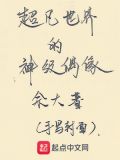 超凡世界
的
神级偶像
佘大著
(手写封面)
起点中文网